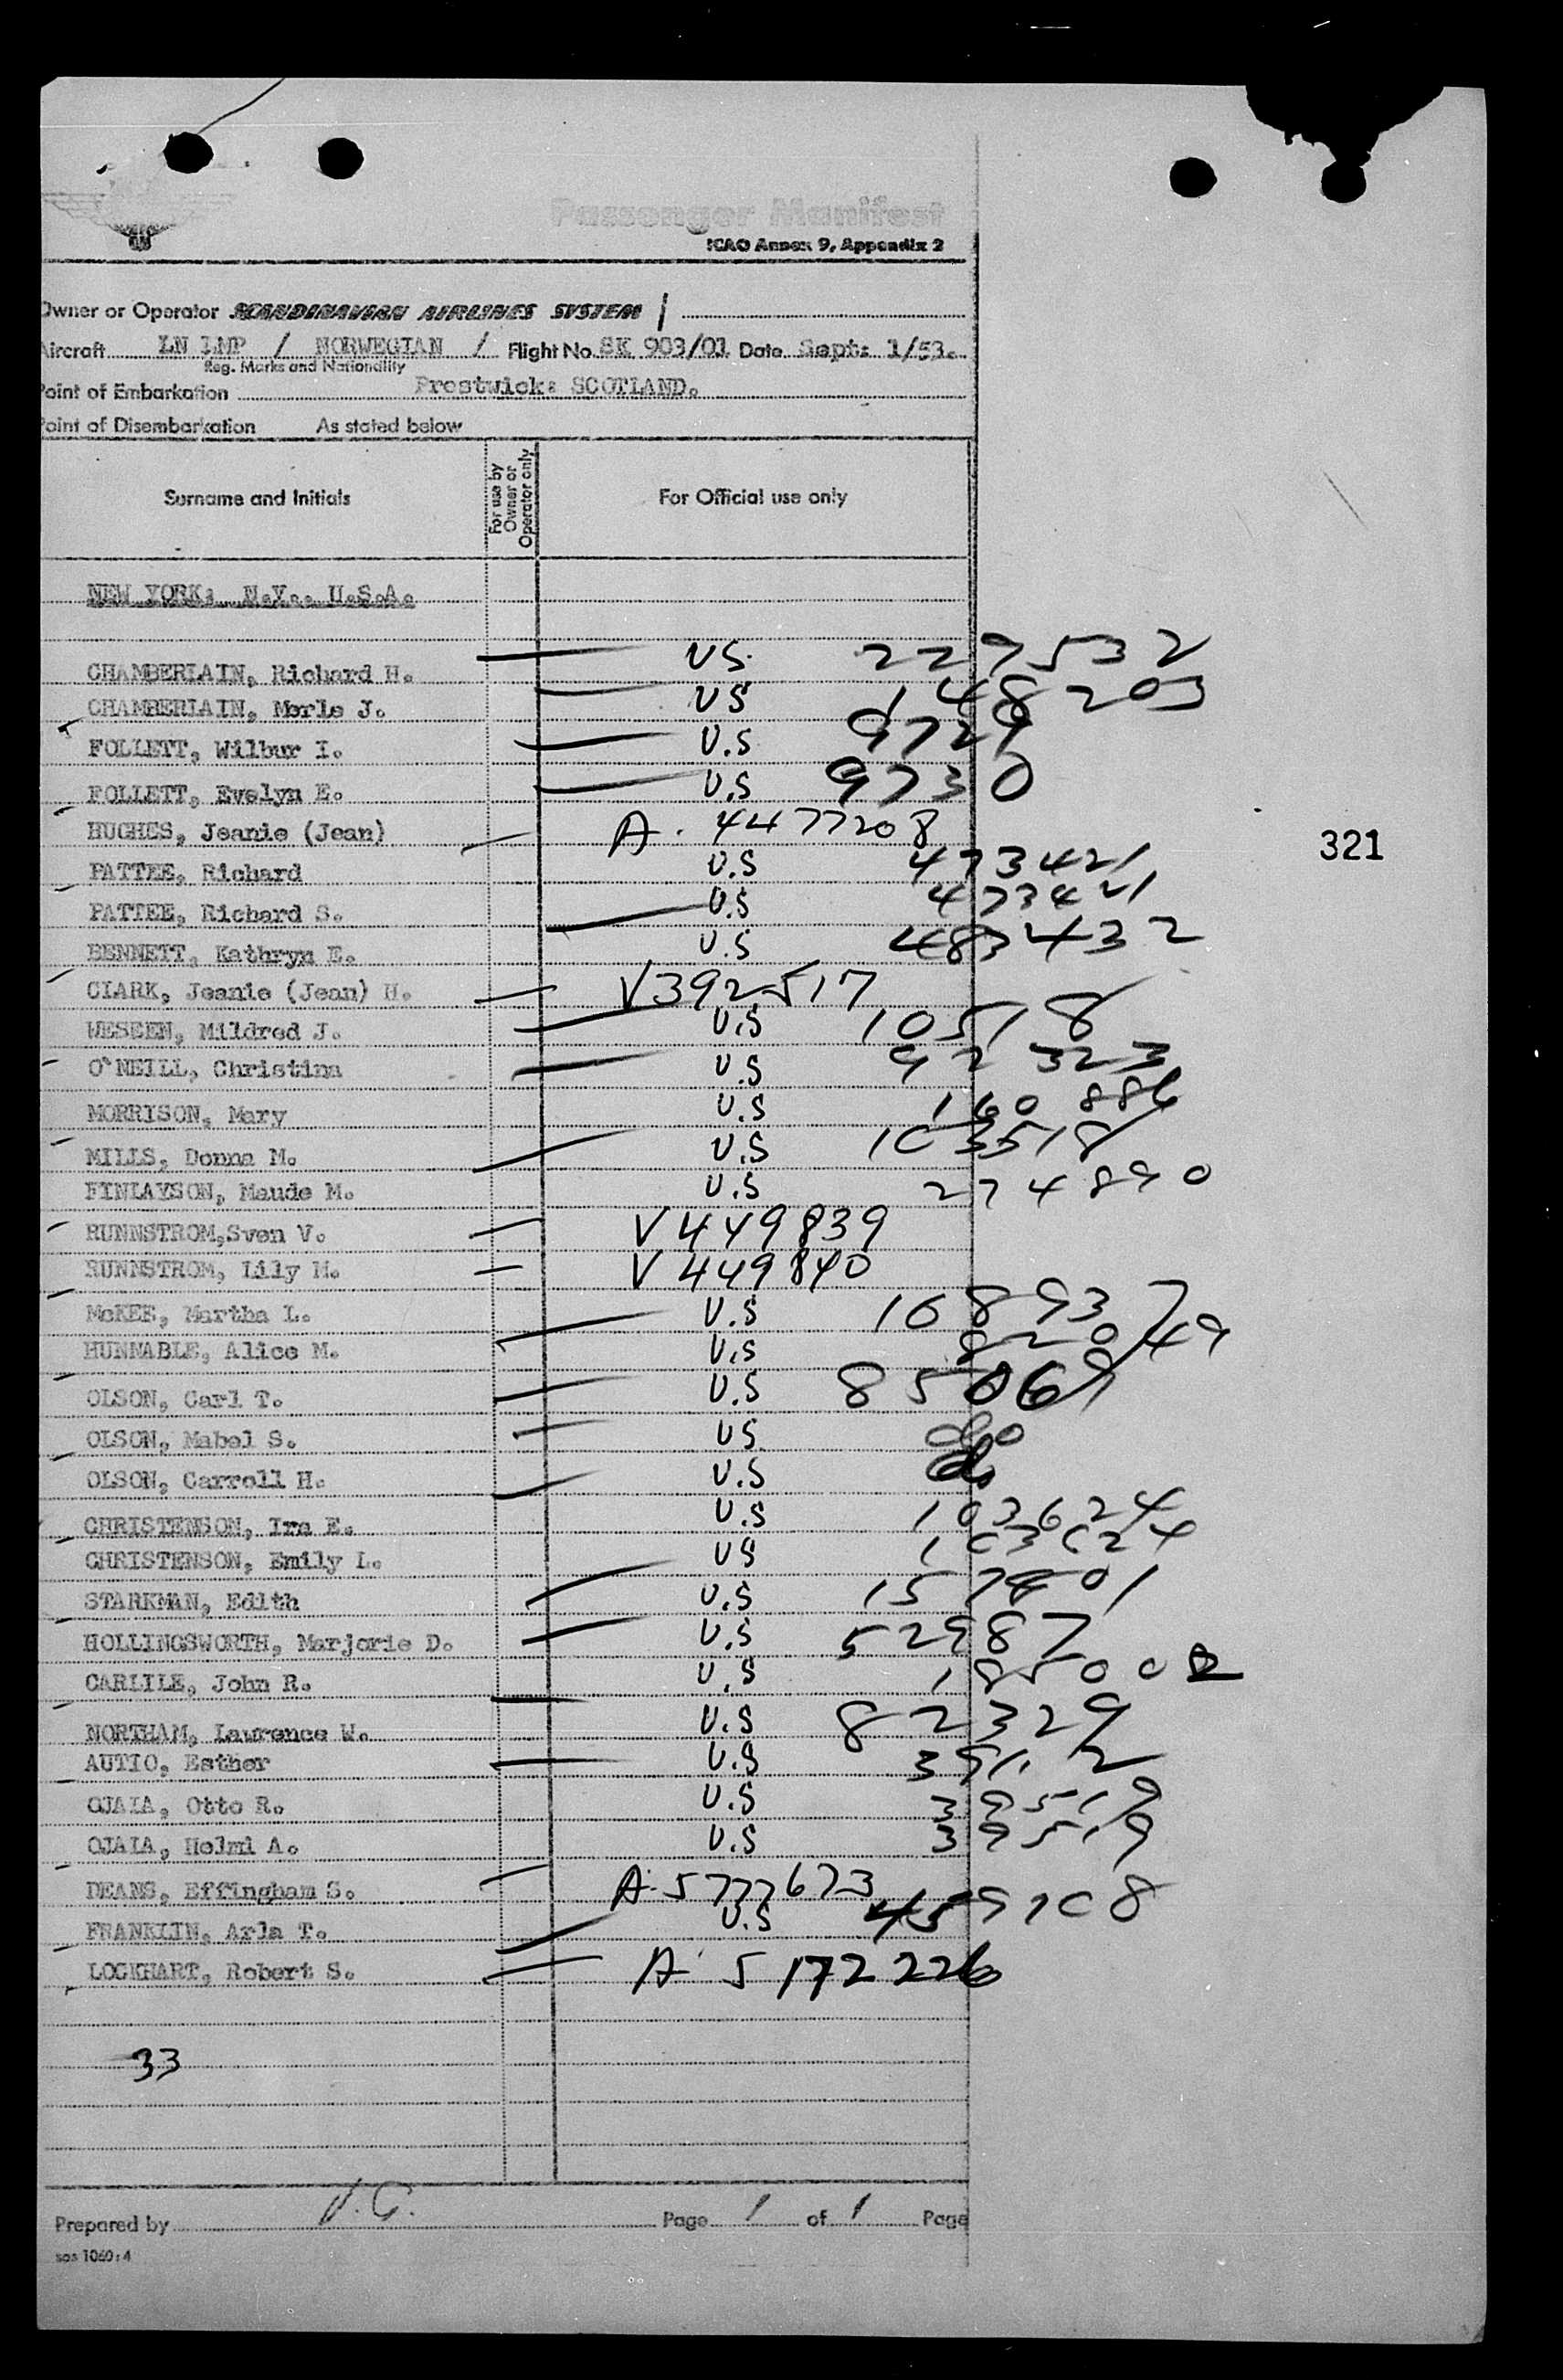 Passenger Manifest
ICAO Annex 9, Appendix 2
Owner or Operator SCANDINAVIAN AIRLINES SYSTEM
Aircraft LN LMP / NORWEGIAN / Flight No. SK 903/01 Date Sept: 1/53.
Reg. Marks and Nationality
Point of Embarkation Prestwick: SCOTLAND.
Point of Disembarkation As stated below
Surname and Initials For use by Owner or Operator only For Official use only
NEW YORK: N.Y.. U.S.A.
CHAMBERLAIN, Richard H. US. 227532
CHAMBERLAIN, Merle J. US 148203
FOLLETT, Wilbur I. U.S 9729
FOLLETT, Evelyn E. U.S 9730
HUGHES, Jeanie (Jean) A. 4477208
321
PATTEE, Richard U.S 473421
PATTEE, Richard S. U.S 473421
BENNETT, Kathryn E. U.S 483432
CLARK, Jeanie (Jean) H. V392517
WESEEN, Mildred J. U.S 10518
O'NEILL, Christina U.S 92323
MORRISON, Mary U.S 160886
MILLS, Donna M. U.S 103518
FINLAYSON, Maude M. U.S 274890
RUNNSTROM,Sven V. V449839
RUNNSTROM, Lily M. V449840
McKEE, Martha L. U.S 168937
HUNNABLE, Alice M. U.S 82049
OLSON, Carl T. U.S 85069
OLSON, Mabel S. US do
OLSON, Carroll H. U.S do
CHRISTENSON, Ira E. U.S 103624
CHRISTENSON, Emily L. US 103624
STARKMAN, Edith U.S 157401
HOLLINGSWORTH, Marjorie D. U.S 52987
CARLILE, John R. U.S 185002
NORTHAM, Lawrence W. U.S 82329
AUTIO, Esther U.S
OJALA, Otto R. U.S 39519
OJALA, Helmi A. U.S 39519
DEANS, Effingham S. A. 5777673
FRANKLIN, Arla T. U.S 459108
LOCKHART, Robert S. A 5172226
33
Prepared by J.G. Page 1 of 1 Page
sas 1060:4